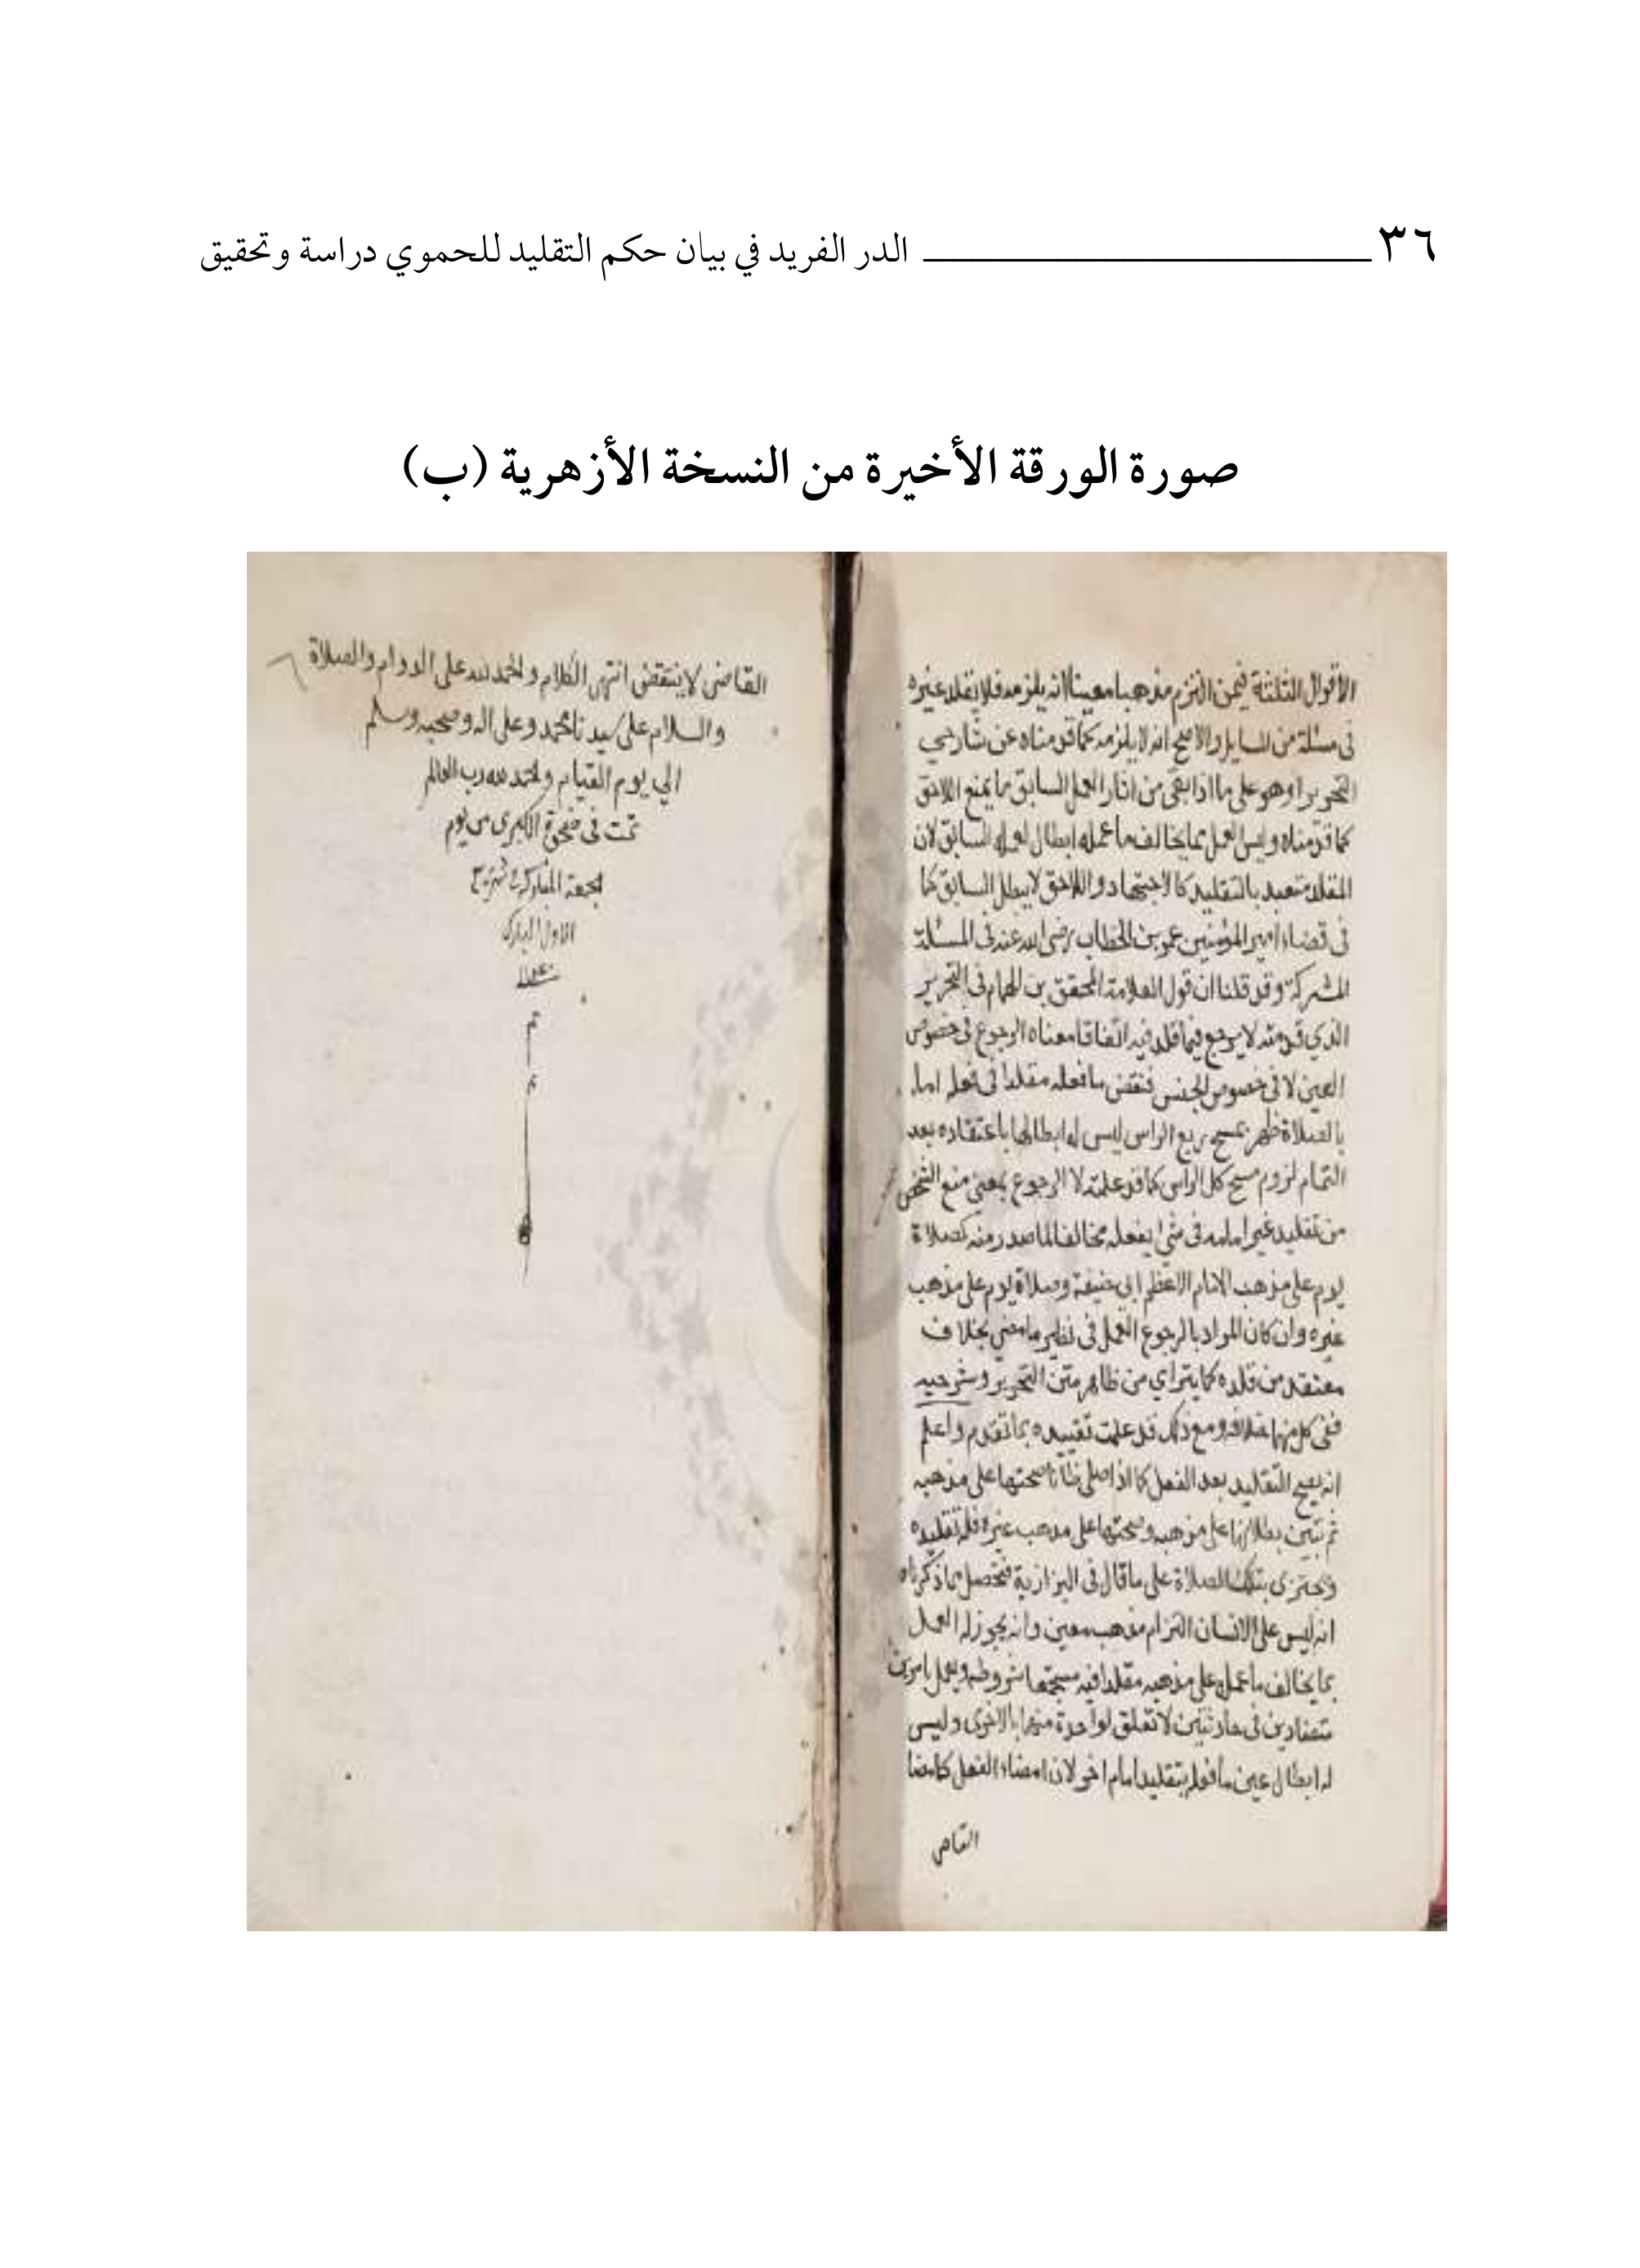 ٣٦ الدر الفريد في بيان حكم التقليد للحموي دراسة وتحقيق
صورة الورقة الأخيرة من النسخة الأزهرية (ب)
الأقوال الثلثة فيمن التزم مذهبا معينا انه يلزمه فلا يقلد غيره
في مسئلة من المسايل والاصح انه لا يلزمه كما قدمناه عن شارحي
التحرير او هو على ما اذا بقى من اثار العمل السابق ما يمنع اللاحق
كما قدمناه وليس العمل بما يخالف ما عمله ابطال لعمله السابق لان
المقلد متعبد بالتقليد كالاجتهاد واللاحق لا يبطل السابق كما
فى قضاء امير المؤمنين عمر بن الخطاب رضى الله عنه فى المسئلة
المشركة وقد قلنا ان قول العلامة المحقق بن الهمام فى التحرير
الذي قدمته لا يرجع فيما قلد فيه اتفاقا معناه الرجوع فى خصوص
العين لا فى خصوص الجنس فنقض ما فعله مقلدا فى فعله اماما
بالصلاة ظهر بمسح ربع الراس ليس له ابطالها باعتقاده بعد
التمام لزوم مسح كل الراس كما قد علمته لا الرجوع بمعنى منع الشخص
من تقليد غير امامه فى شي يفعله مخالفا لما صدر منه كصلاة
يوم على مذهب الامام الاعظم ابي حنيفة وصلاة يوم على مذهب
غيره وان كان المراد بالرجوع العمل فى نظير ما مضي بخلاف
معتقد من قلده كما يتراي من ظاهر متن التحرير وشرحيه
ففى كل منهما خلافه ومع ذلك قد علمت تقييده بما تقدم واعلم
انه يصح التقليد بعد الفعل كما اذا صلى ظانا صحتها على مذهبه
ثم تبين بطلانها على مذهبه وصحتها على مذهب غيره فله تقليده
ويجتزى بتلك الصلاة على ما قال فى البزازية فتحصل بما ذكرناه
انه ليس على الانسان التزام مذهب معين وانه يجوز له العمل
بما يخالف ما عمله على مذهبه مقلدا فيه مستجمعا شروطه ويعمل بامرين
متضادين فى حادثتين لا تعلق لواحدة منهما بالاخرى وليس
له ابطال عين ما فعله بتقليد امام اخر لان امضاء الفعل كامضا
القاضى
القاضى لا ينتقض انتهى الكلام والحمد لله على الدوام والصلاة
والسلام على سيدنا محمد وعلى اله وصحبه وسلم
الي يوم القيام والحمد لله رب العالم
تمت فى ضحوة الكبرى من يوم
الجمعة المباركة شهر ربيع
الاول المبارك
تم
تم